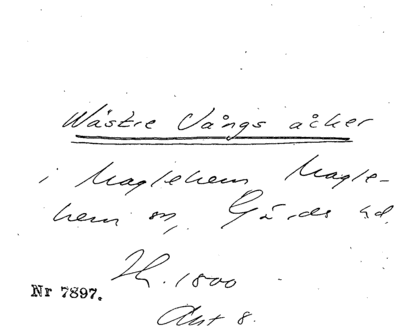 Wästre Vångs åker
i Maglehem Magle-
hem sn, Gärds hd.
Hs. 1800
Nr 7897.
Akt 8.